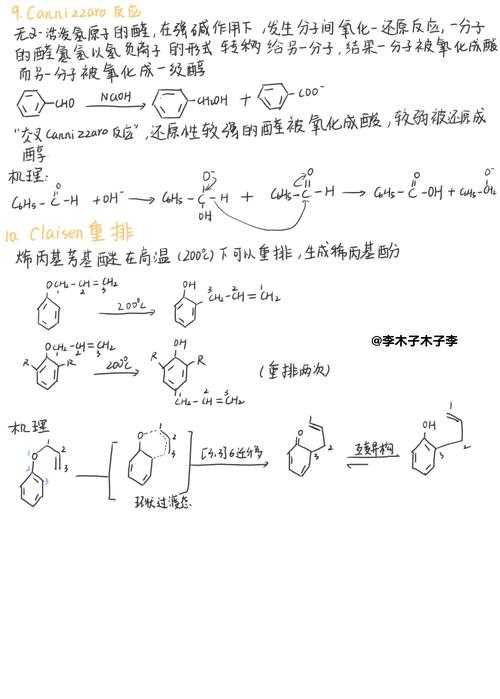 9. Cannizzaro 反应
无α-活泼氢原子的醛,在强碱作用下,发生分子间氧化-还原反应,一分子
的醛基氢以氢负离子的形式转移给另一分子,结果一分子被氧化成酸
而另一分子被氧化成一级醇
CHO NaOH CH2OH + COO-
"交叉Cannizzaro反应",还原性较强的醛被氧化成酸,较弱被还原成
醇
机理:
C6H5-C-H + OH- → C6H5-C-H + C6H5-C-H → C6H5-C-OH + C6H5-CH2
O O- O O O-
OH
10. Claisen重排
烯丙基芳基醚在高温(200℃)下可以重排,生成烯丙基酚
OCH2-CH=CH2 200℃ OH CH2-CH=CH2
1 2 3 3 2 1
@李木子木子李
OCH2-CH=CH2 R R 200℃ OH R R
1 2 3
CH2-CH=CH2 (重排两次)
1 2 3
机理
O 1 2 3 O 1 2 3 [3,3]σ迁移 O 1 2 3 互变异构 OH 1 2 3
环状过渡态